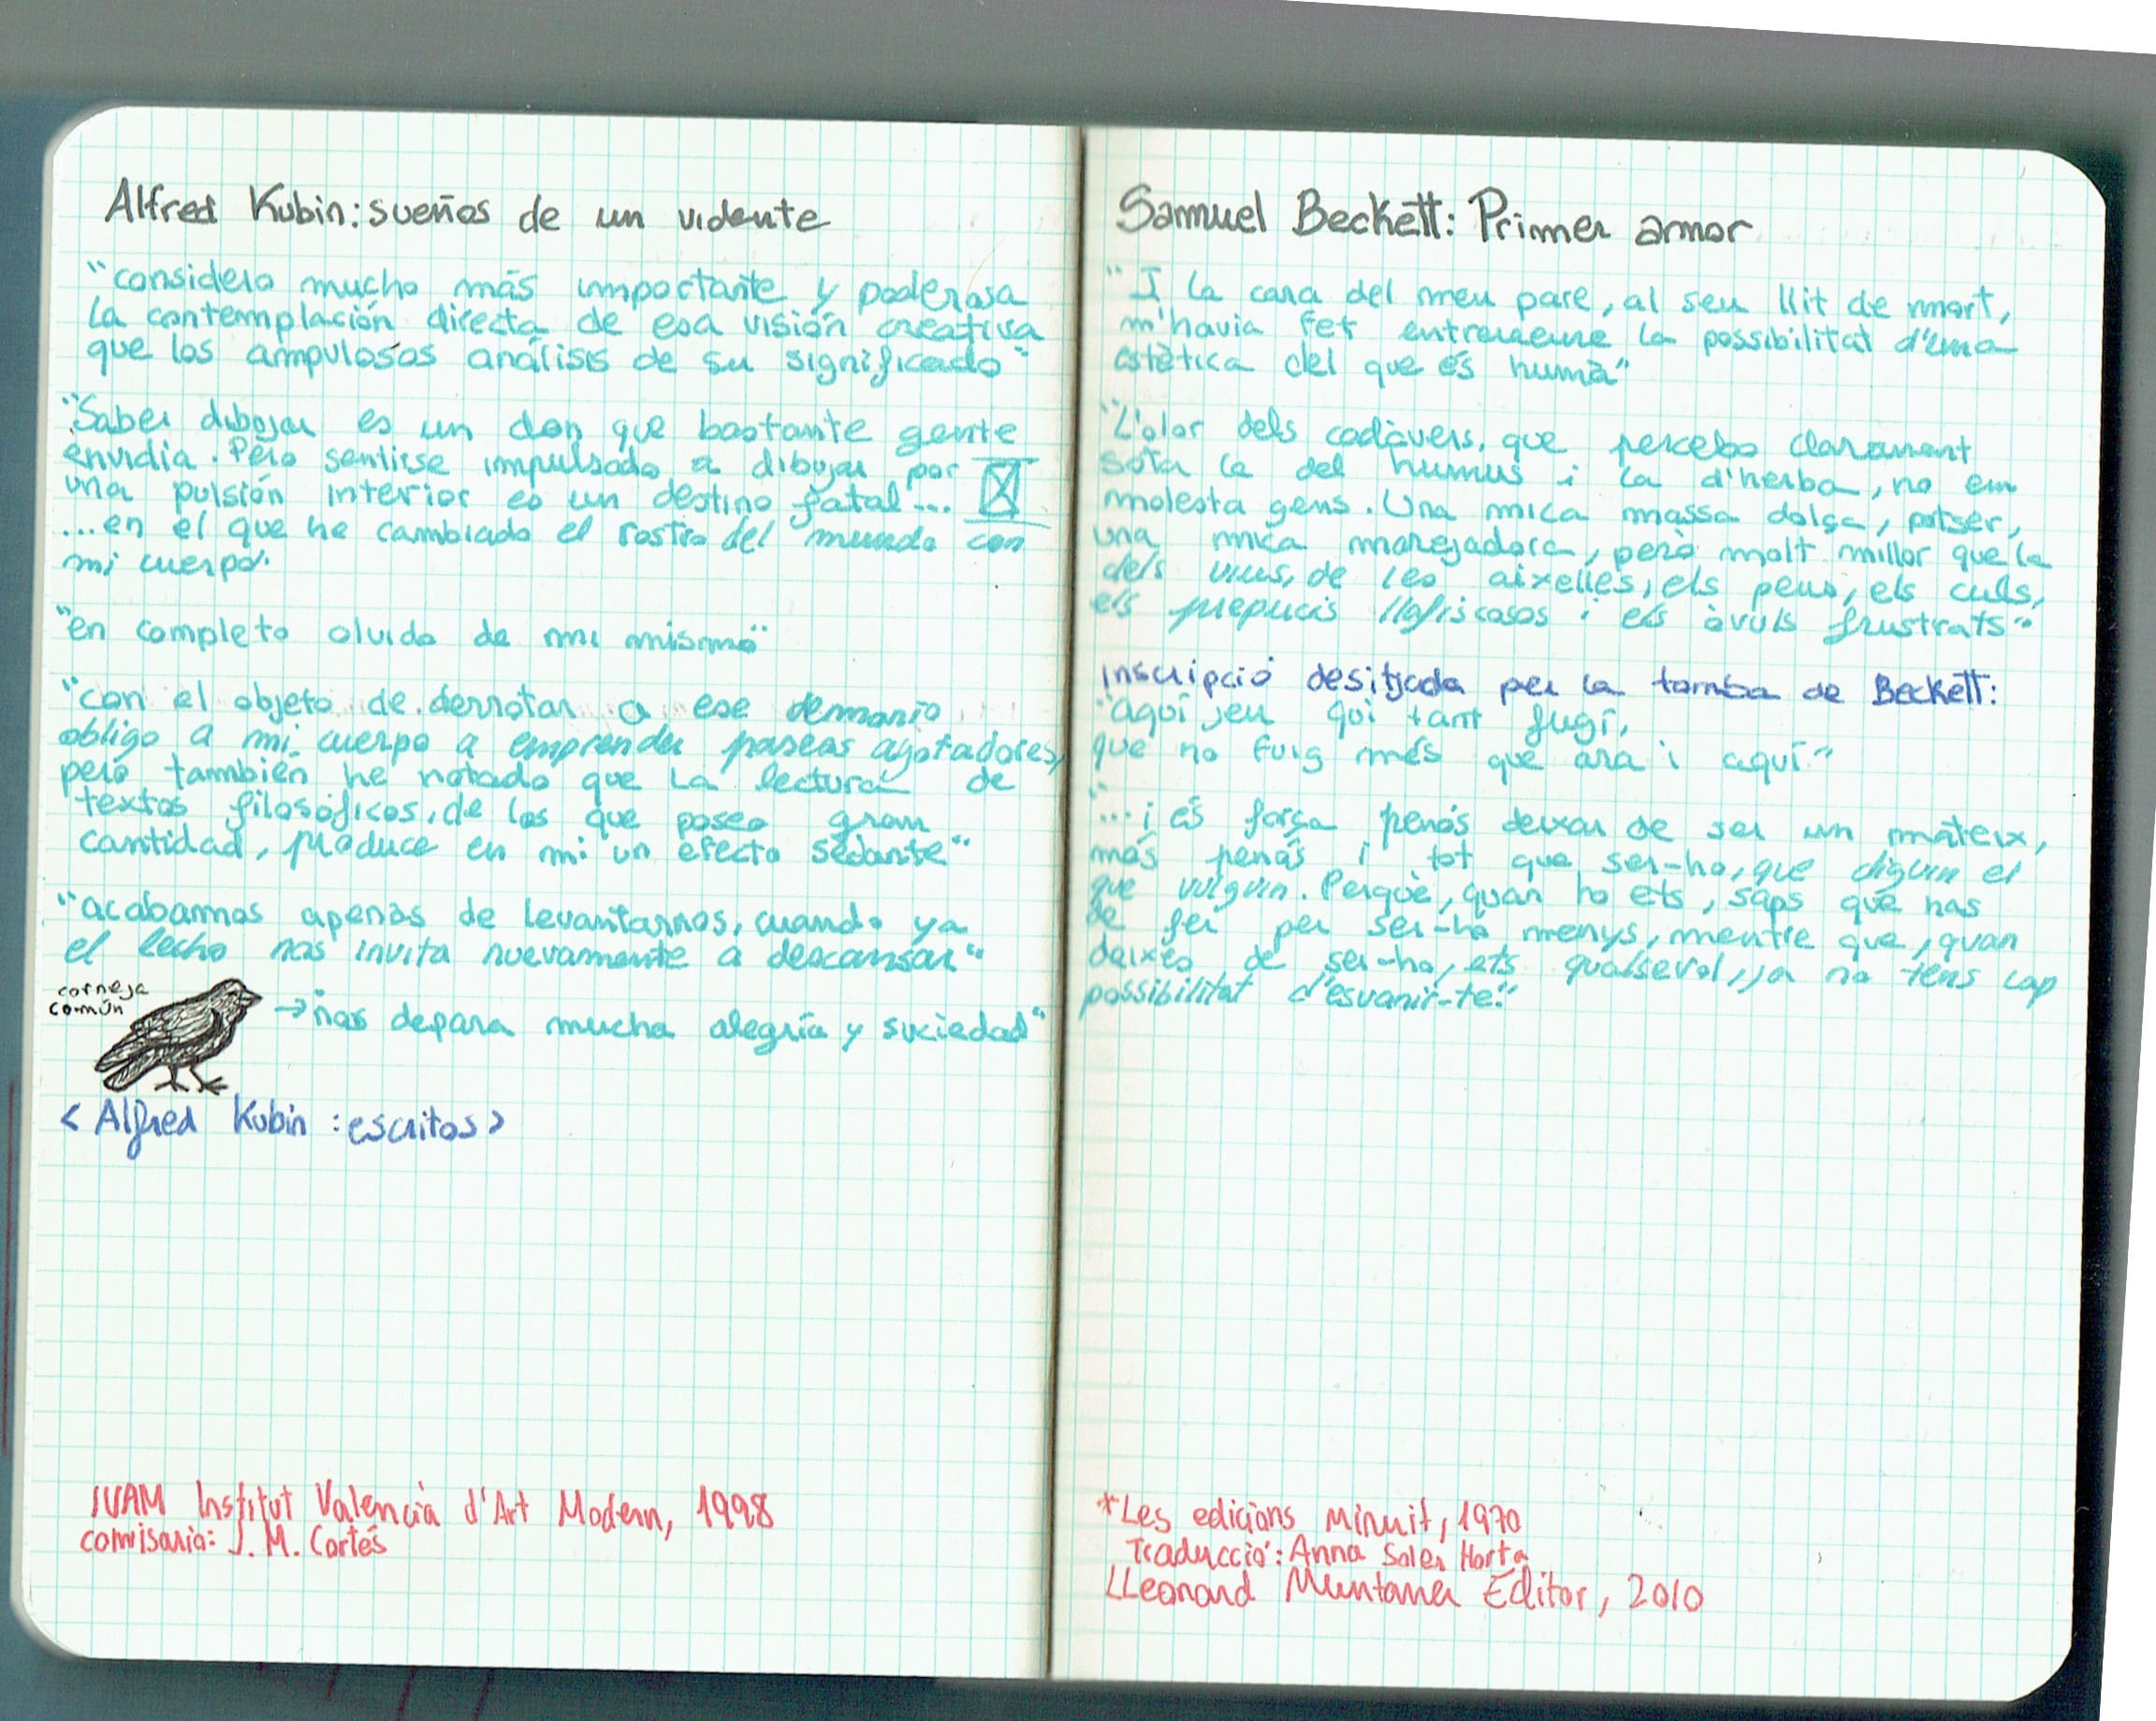 Alfred Kubin: sueños de un vidente
"considero mucho más importante y poderosa
la contemplación directa de esa visión creativa
que los ampulosos análisis de su significado"
"Saber dibujar es un don que bastante gente
envidia. Pero sentirse impulsado a dibujar por
una pulsión interior es un destino fatal"...
...en el que he cambiado el rostro del mundo con
mi cuerpo"
"en completo olvido de mi mismo"
"con el objeto de derrotar a ese demonio
obligo a mi cuerpo a emprender paseos agotadores,
pero también he notado que la lectura de
textos filosóficos, de los que poseo gran
cantidad, produce en mi un efecto sedante"
"acabamos apenas de levantarnos, cuando ya
el lecho nos invita nuevamente a descansar"
corneja
común
→ "nos depara mucha alegría y suciedad"
<Alfred Kubin: escritos>
IVAM Institut Valencià d'Art Modern, 1998
comisario: J. M. Cortés
Samuel Beckett: Primer amor
"I la cara del meu pare, al seu llit de mort,
m'havia fet entreveure la possibilitat d'una
estètica del que és humà"
"L'olor dels cadàvers, que percebo clarament
sota la del humus i la d'herba, no em
molesta gens. Una mica massa dolça, potser,
una mica marejadora, però molt millor que la
dels vius, de les aixelles, els peus, els culs,
els prepucis llefiscosos i els òvuls frustrats"
Inscripció desitjada per la tomba de Beckett:
"aquí jeu qui tant fugí,
que no fuig més que ara i aquí"
"...i és força penós deixar de ser un mateix,
més penós i tot que ser-ho, que diguin el
que vulguin. Perquè, quan ho ets, saps què has
de fer per ser-ho menys, mentre que, quan
deixes de ser-ho, ets qualsevol, ja no tens cap
possibilitat d'esvanir-te."
*Les edicions Minuit, 1970
Traducció: Anna Soler Horta
LLeonard Muntaner Editor, 2010